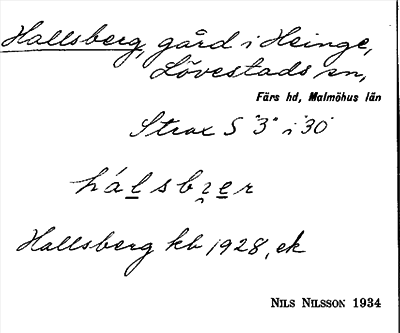 Hallsberg, gård i Heinge,
Lövestads sn,
Färs hd, Malmöhus län
Strax S "3" i "30"
hálsbrer
Hallsberg kb 1928, ek
NILS NILSSON 1934